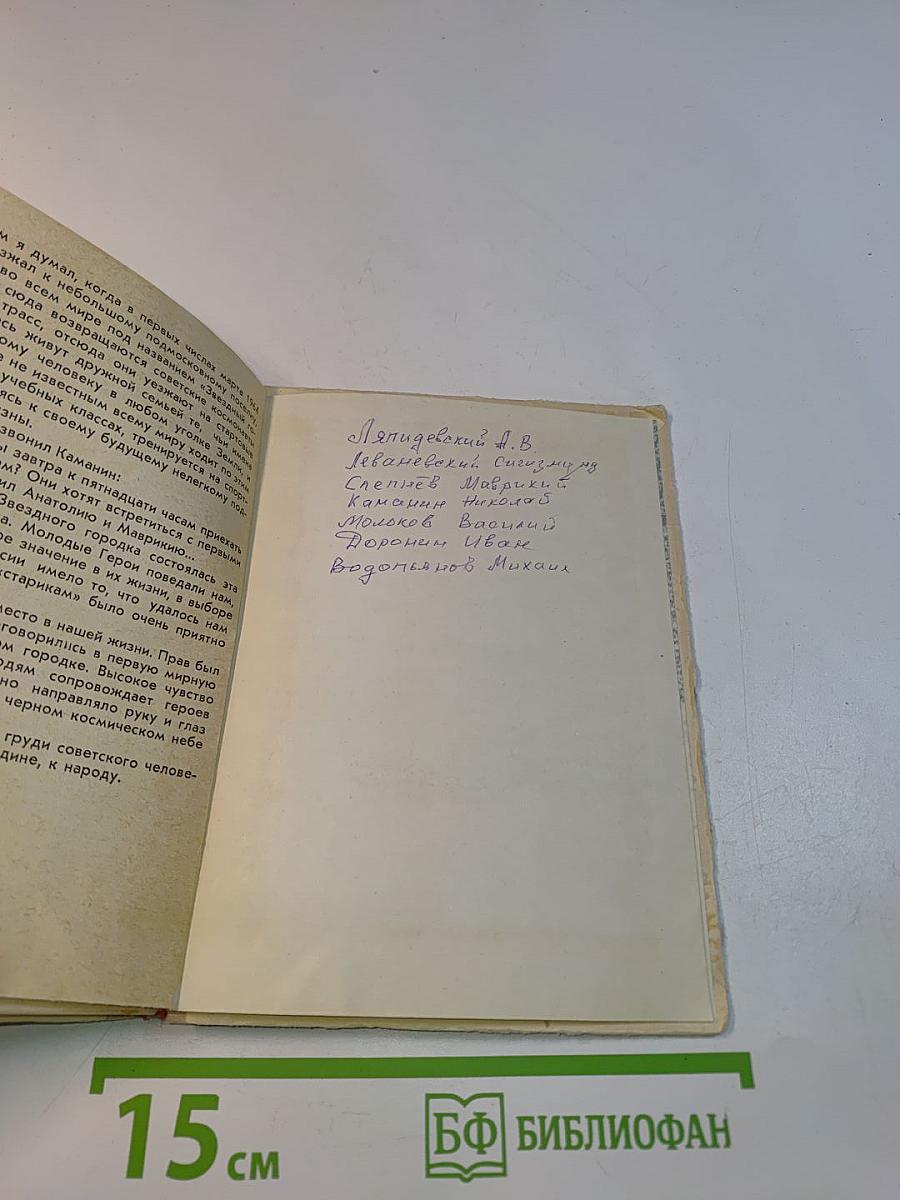 м я думал, когда в первых числах марта 1964
зжал к небольшому подмосковному поселку,
во всем мире под названием «Звездный го-
сюда возвращаются советские космонавты
трасс, отсюда они уезжают на стартовые
сь живут дружной семьей те, чьи имена
ому человеку в любом уголке Земли, и
е не известным всему миру, ходит по этим
учебных классах, тренируется на спорт-
ясь к своему будущему нелегкому под-
зны.
звонил Каманин:
ы завтра к пятнадцати часам приехать
ом? Они хотят встретиться с первыми
ил Анатолию и Маврикию...
Звездного городка состоялась эта
а. Молодые Герои поведали нам,
ое значение в их жизни, в выборе
сии имело то, что удалось нам
«старикам» было очень приятно
место в нашей жизни. Прав был
говорились в первую мирную
ом городке. Высокое чувство
одям сопровождает героев
но направляло руку и глаз
черном космическом небе
груди советского челове-
дине, к народу.
Ляпидевский А.В.
Леваневский Сигизмунд
Слепнёв Маврикий
Каманин Николай
Молоков Василий
Доронин Иван
Водопьянов Михаил
15 см
БФ БИБЛИОФАН